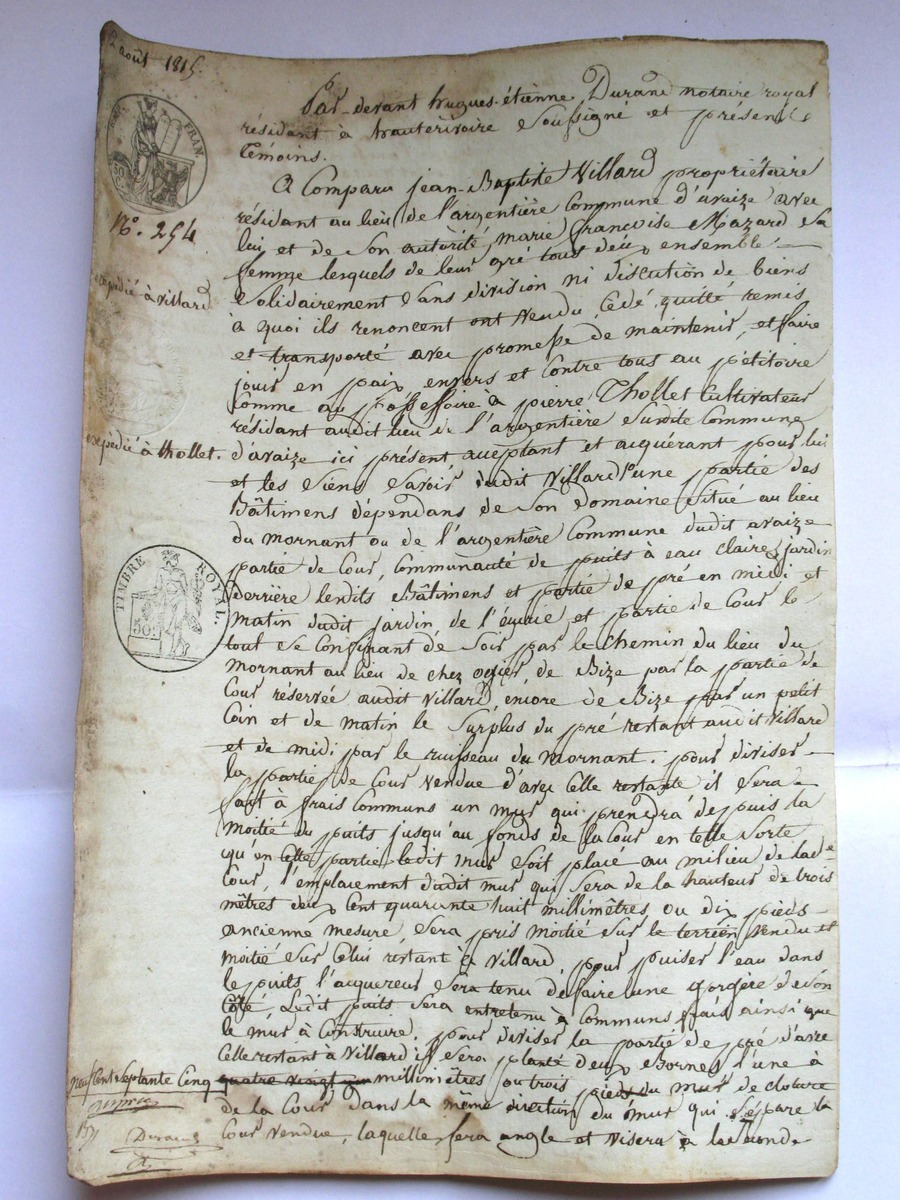 2 août 1815.
Par devant hugues-étienne Durand notaire royal
résidant à hauterivoire soussigné et présents
témoins.
A Comparu jean-Baptiste Villard propriétaire
résidant au lieu de l'argentière Commune d'avaize avec
lui, et de son autorité, marie françoise Mazard sa
femme lesquels de leur gré tous deux ensemble
solidairement sans division ni discution de biens
à quoi ils renoncent ont Vendu, Cédé, quitté, remis
et transporté avec promesse de maintenir, et faire
jouir en paix envers et contre tous au pétitoire
Comme au possessoire à pierre Thollet Cultivateur
résidant audit lieu de l'argentière susdite Commune
d'avaize ici présent acceptant et acquérant pour lui
et les siens savoir dudit Villard une partie des
Bâtimens dépendans de son domaine situé au lieu
du mornant ou de l'argentière Commune dudit avaize
partie de Cour, Communauté de puits à eau claire, jardin
derrière lesdits Bâtimens et partie de pré en midi et
matin dudit jardin de l'écurie et partie de Cour le
tout se Confinant de soir par le chemin du lieu du
mornant au lieu de chez ogier, de Bize par la partie de
Cour réservée audit Villard, encore de Bize par un petit
Coin et de matin le surplus du pré restant audit Villard
et de midi par le ruisseau du mornant. pour diviser
la partie de Cour Vendue d'avec Celle restante il sera
fait à frais Communs un mur qui prendra depuis la
moitié du puits jusqu'au fonds de la Cour en telle sorte
qu'en Cette partie ledit mur soit placé au milieu de lade
Cour, l'emplacement dudit mur qui sera de la hauteur de trois
mètres deux Cent quarante huit millimètres ou dix pieds
ancienne mesure sera pris moitié sur le terrein Vendu et
moitié sur Celui restant à Villard, pour puiser l'eau dans
le puits l'acquereur sera tenu de faire une gorgère de son
Côté, Ledit puits sera entretenu à Communs frais ainsi que
le mur à Construire. pour diviser la partie de pré d'avec
Celle restant à Villard il sera planté deux Bornes l'une à
quatre vingt millimètres ou trois pieds du mur de cloture
de la Cour dans la même direction du mur qui sépare la
Cour Vendue, laquelle fera angle et Visera à la seconde
FRAN.
50
N°. 254
expédié à Villard
expédié à thollet.
TIMBRE ROYAL
50
neuf Cent septante Cinq
Durand